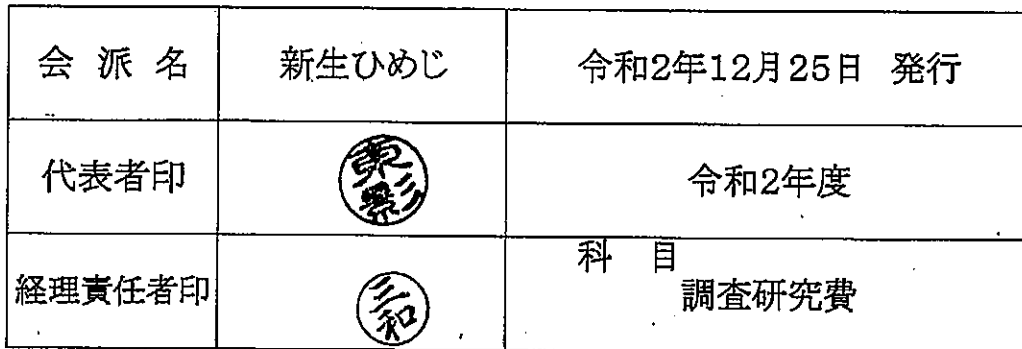 会派名 新生ひめじ 令和2年12月25日 発行
代表者印 東影 令和2年度
科目
経理責任者印 三和 調査研究費